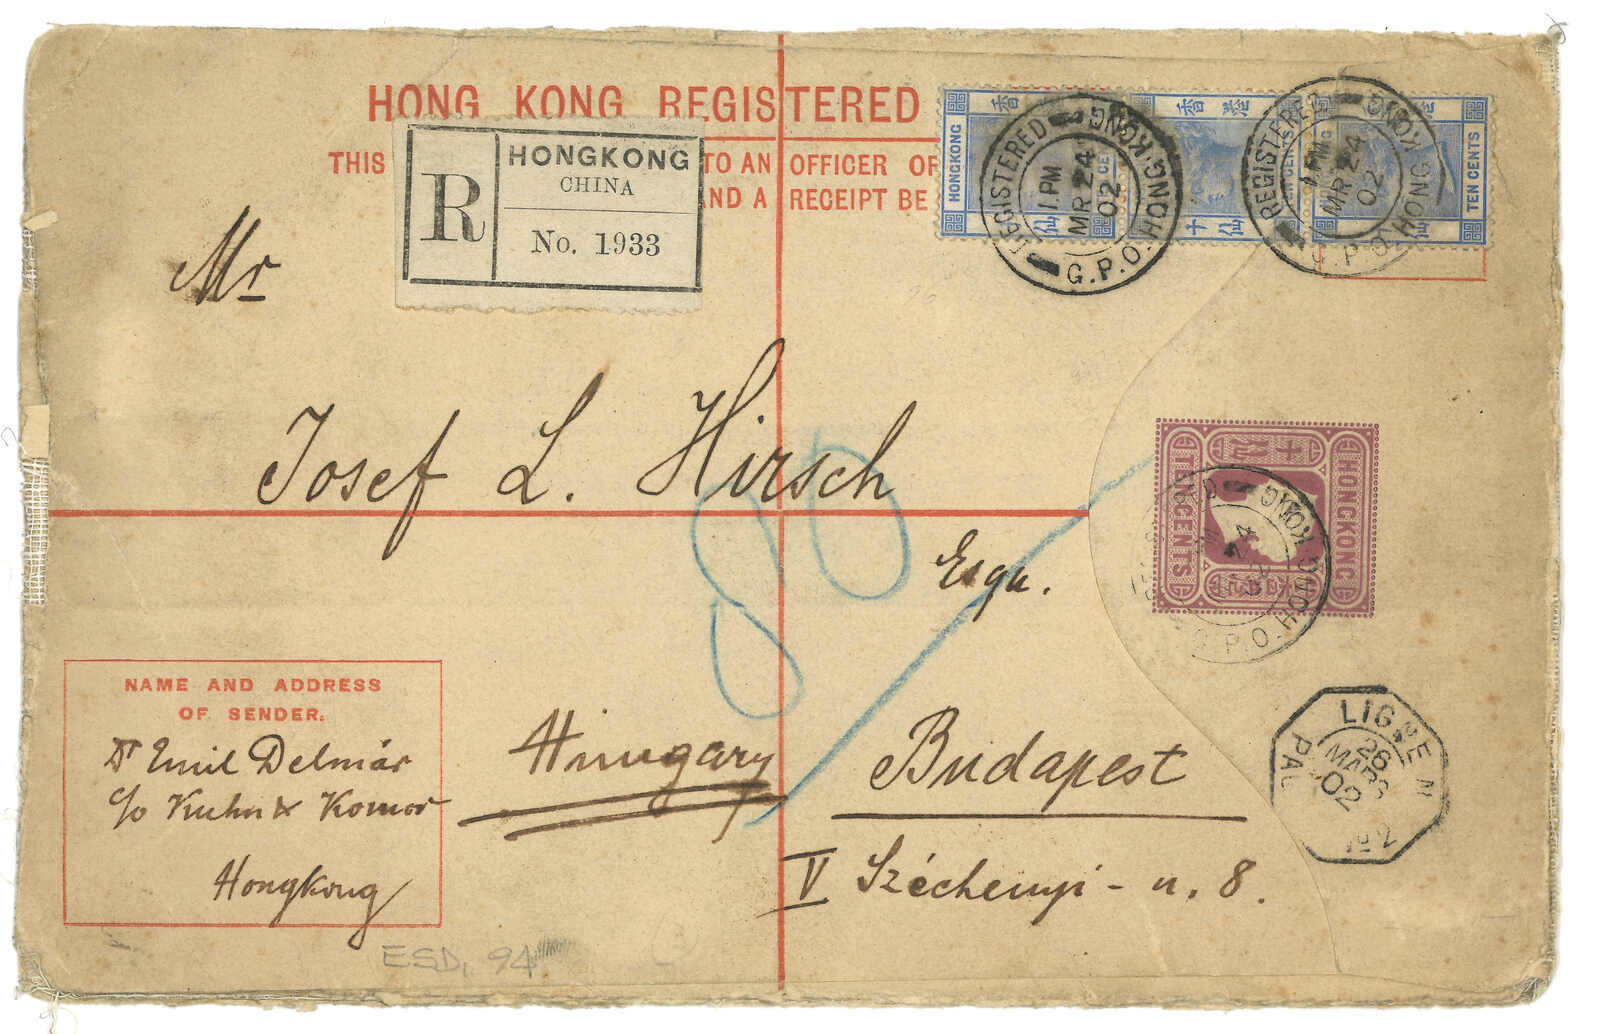 HONG KONG REGISTERED
THIS TO AN OFFICER OF
AND A RECEIPT BE
R
HONGKONG
CHINA
No. 1933
HONGKONG
香港
TEN CENTS
REGISTERED
1 PM
MR 24
02
G.P.O. HONG KONG
REGISTERED
1 PM
MR 24
02
G.P.O. HONG KONG
Mr
Josef L. Hirsch
Esqu.
HONGKONG
TEN CENTS
24
G.P.O. HONG KONG
80
Hungary
Budapest
V Széchenyi - u. 8.
LIGNE N
PAQ
26
MARS
02
No 2
NAME AND ADDRESS
OF SENDER.
Dr Emil Delmár
c/o Kuhn & Komor
Hongkong
ESD, 94